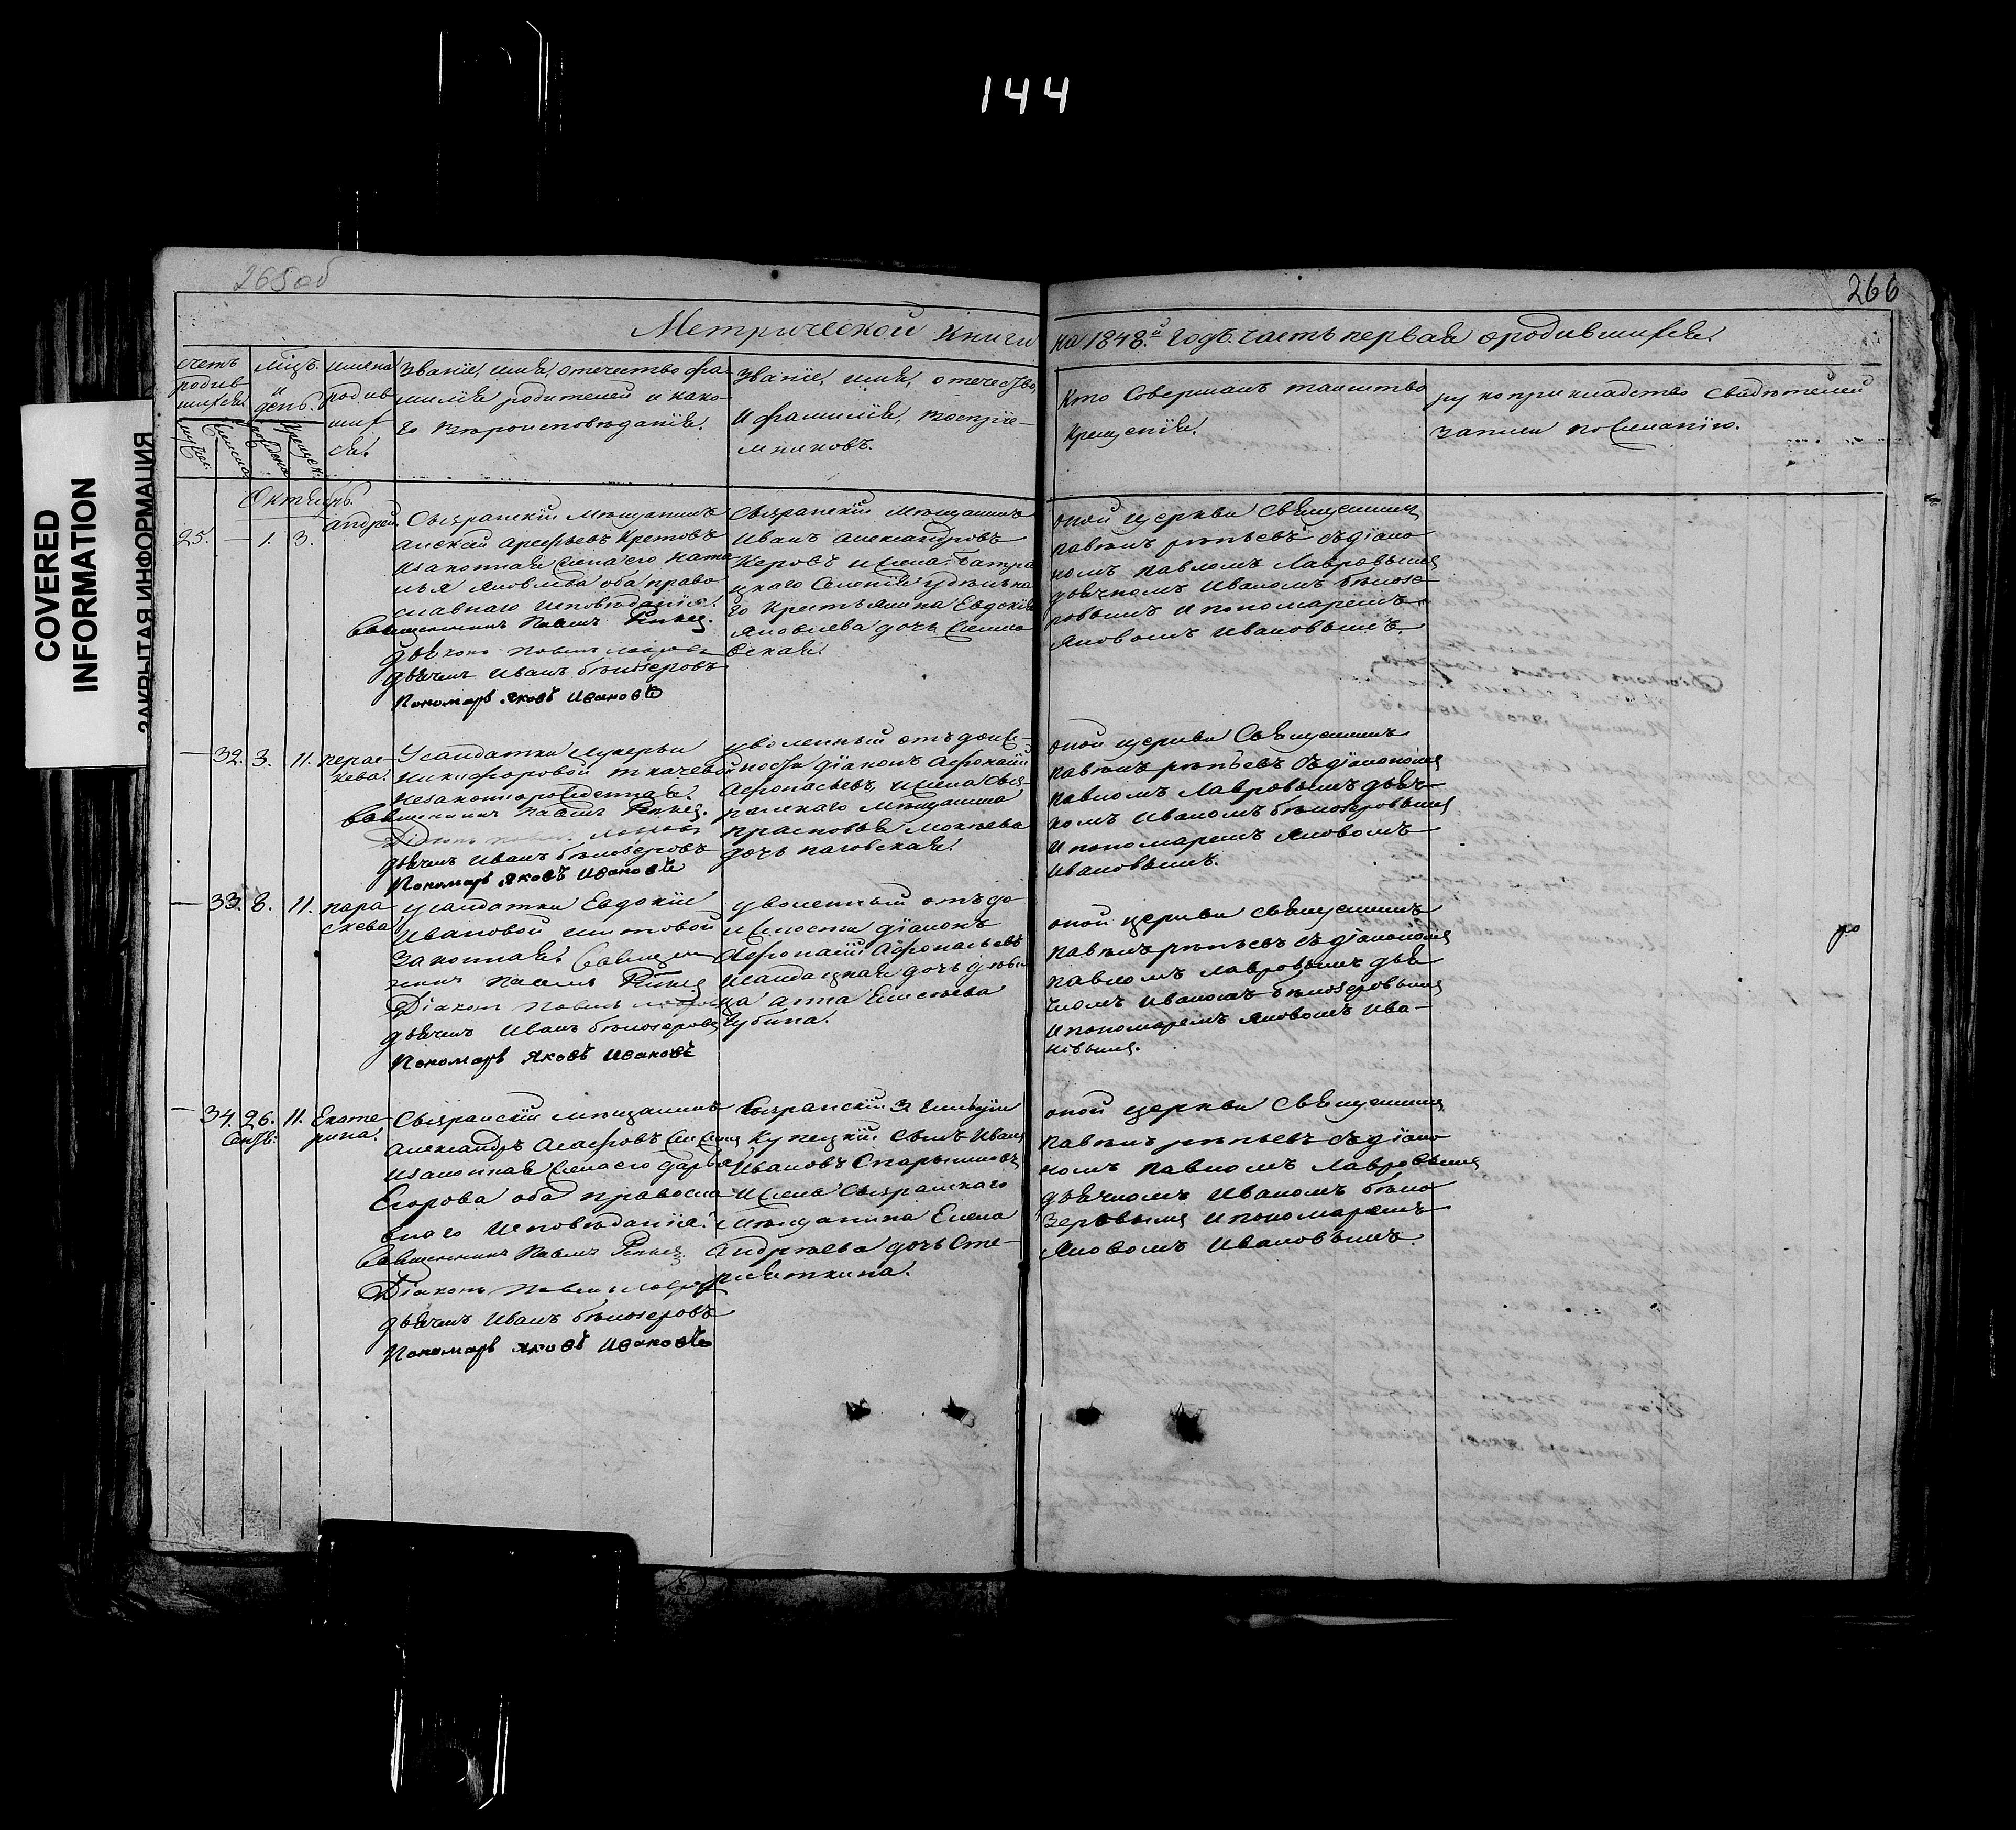 144
265 об
266
COVERED
INFORMATION
ЗАКРЫТАЯ ИНФОРМАЦИЯ
Метрической книги на 1848.й Годъ. часть первая о родившихся.
счетъ
родив
шихся
мсцъ.
и
день.
имена
родив
ших
ся.
Званіе, имя, отечество фа-
милія родителей и како-
го вѣроисповѣданія.
Званіе, имя, отечество,
и фамилія, воспріе-
мниковъ.
Кто Совершалъ таинство
крещенія.
рукоприкладство свидѣтелей
записи по желанію.
Октябрь
25. — 1. 3.
андрей
Сызранскій мѣщанинъ
алексѣй арефьевъ Кретовъ
и законная жена его ната
лья Яковлева оба право
славнаго исповѣданія.
Священникъ Павелъ
Дiаконъ Павелъ Лавровъ
дьячекъ Иванъ бѣлозеровъ
Пономарь Яковъ Ивановъ
Сызранскій мѣщанинъ
Иванъ александровъ
Селенія удѣльна
го Крестьянина Евдокія
Яковлева дочь
оной церкви Священникъ
павелъ съ діако
номъ павломъ Лавровымъ
дьячкомъ Иваномъ бѣлозе
ровымъ и пономаремъ
Яковомъ Ивановымъ.
— 32. 3. 11.
парас-
кева
У солдатки Лукерьи
никифоровой ткачевой
незаконнорожденная.
Священникъ Павелъ
дьячекъ Иванъ бѣлозеровъ
Пономарь Яковъ Ивановъ
уволенный отъ долж-
ности діаконъ Афонасій
Афонасьевъ, и жена сыз
ранскаго мѣщанина
прасковья мокѣева
дочь паговская.
оной церкви Священникъ
павелъ съ діакономъ
павломъ Лавровымъ дьяч
комъ Иваномъ бѣлозеровымъ
и пономаремъ Яковомъ
Ивановымъ.
— 33. 8. 11.
пара
скева
у солдатки Евдокіи
Ивановой шитовой
законная. Священ
никъ Павелъ
Діаконъ Павелъ Лавровъ
дьячекъ Иванъ бѣлозеровъ
Пономарь Яковъ Ивановъ
уволенный отъ до
лжности діаконъ
Афонасій Афонасьевъ
и солдацкая дочь дѣви
ца анна Елисѣева
Губина.
оной церкви священникъ
павелъ съ діакономъ
павломъ лавровымъ дья
чкомъ Иваномъ бѣлозеровымъ
и пономаремъ Яковомъ Ива-
новымъ.
— 34. 26. 11.
Сентя.
Екате-
рина.
Сызранскій мѣщанинъ
александръ
и законная жена его дарья
Егорова оба правосла
внаго исповѣданія.
Священникъ Павелъ
Діаконъ Павелъ Лавровъ
дьячекъ Иванъ бѣлозеровъ
Пономарь Яковъ Ивановъ
Сызранскій 3 гильдіи
купецкій сынъ Иванъ
Ивановъ
и жена Сызранскаго
мѣщанина Елена
андрѣева дочь Сте-
оной церкви Священникъ
павелъ съ діако
номъ павломъ Лавровымъ
дьячкомъ Иваномъ бѣло
зеровымъ и пономаремъ
Яковомъ Ивановымъ.